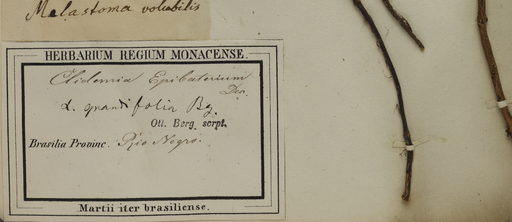 Melastoma volubilis
HERBARIUM REGIUM MONACENSE.
Clidemia Epibaterium
Don.
α. grandifolia Bg.
Ott. Berg scrpt.
Brasilia Provinc. Rio Negro.
Martii iter brasiliense.